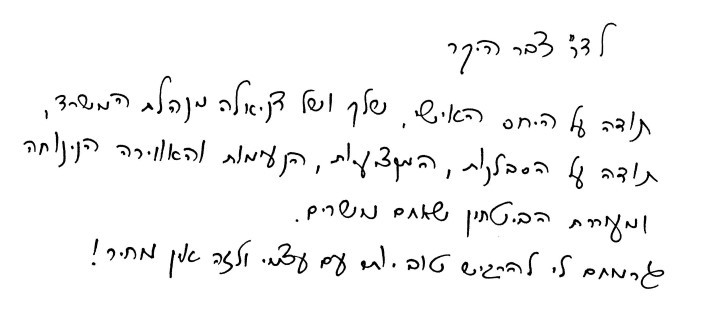 לדר' צבר היקר
תודה על היחס האישי, שלך ושל דניאלה מנהלת המשרד,
תודה על הסבלנות, המקצועיות, הנעימות והאווירה הנינוחה
ומעוררת הביטחון שאתם משרים.
גרמתם לי להרגיש טוב יותר עם עצמי ולזה אין מחיר!